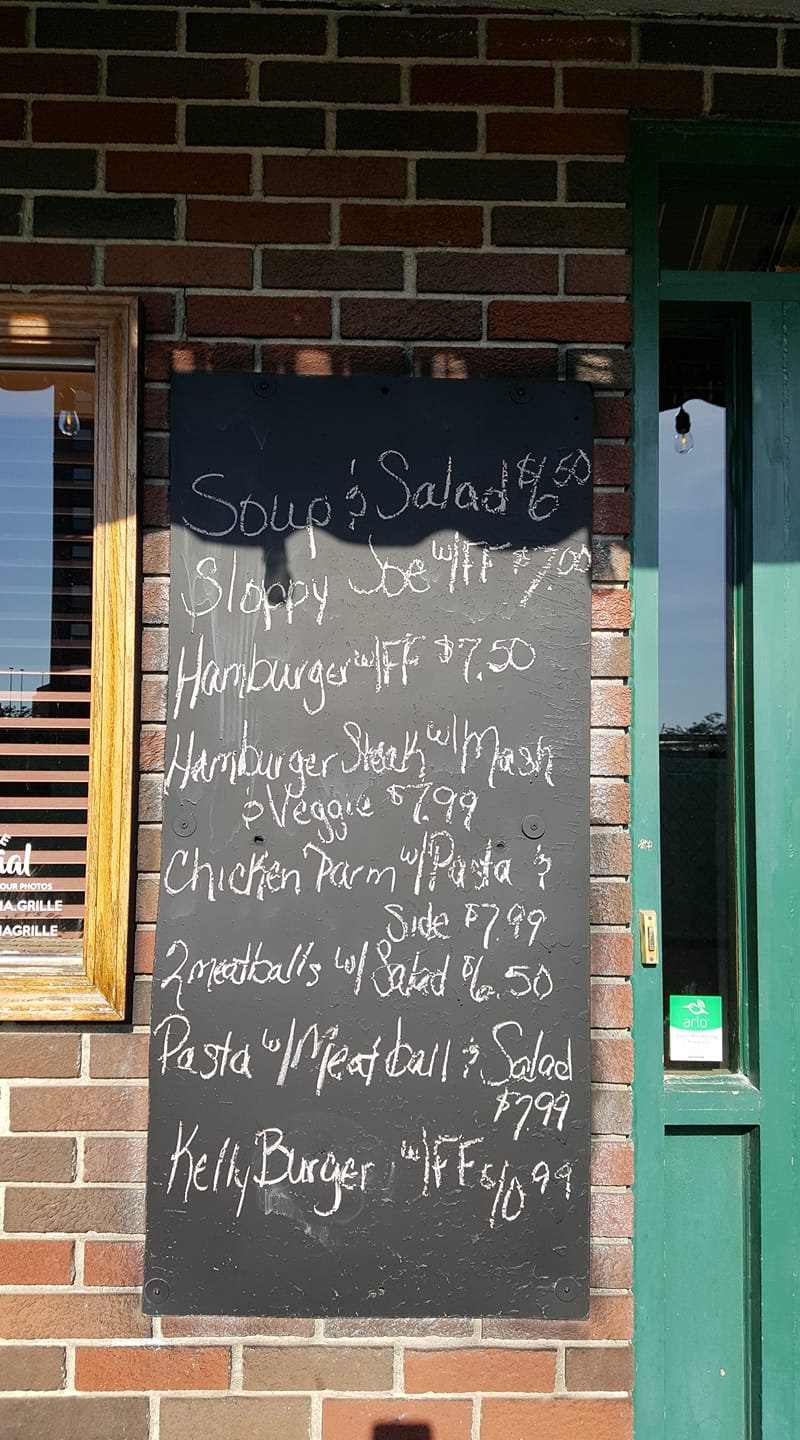 Soup & Salad $6.50
Sloppy Joe w/FF $7.00
Hamburger w/FF $7.50
Hamburger Steak w/Mash
& Veggie $7.99
Chicken Parm w/Pasta &
Side $7.99
2 meatballs w/Salad $6.50
Pasta w/Meatball & Salad
$7.99
Kelly Burger w/FF $10.99
OUR PHOTOS
A.GRILLE
AGRILLE
arlo